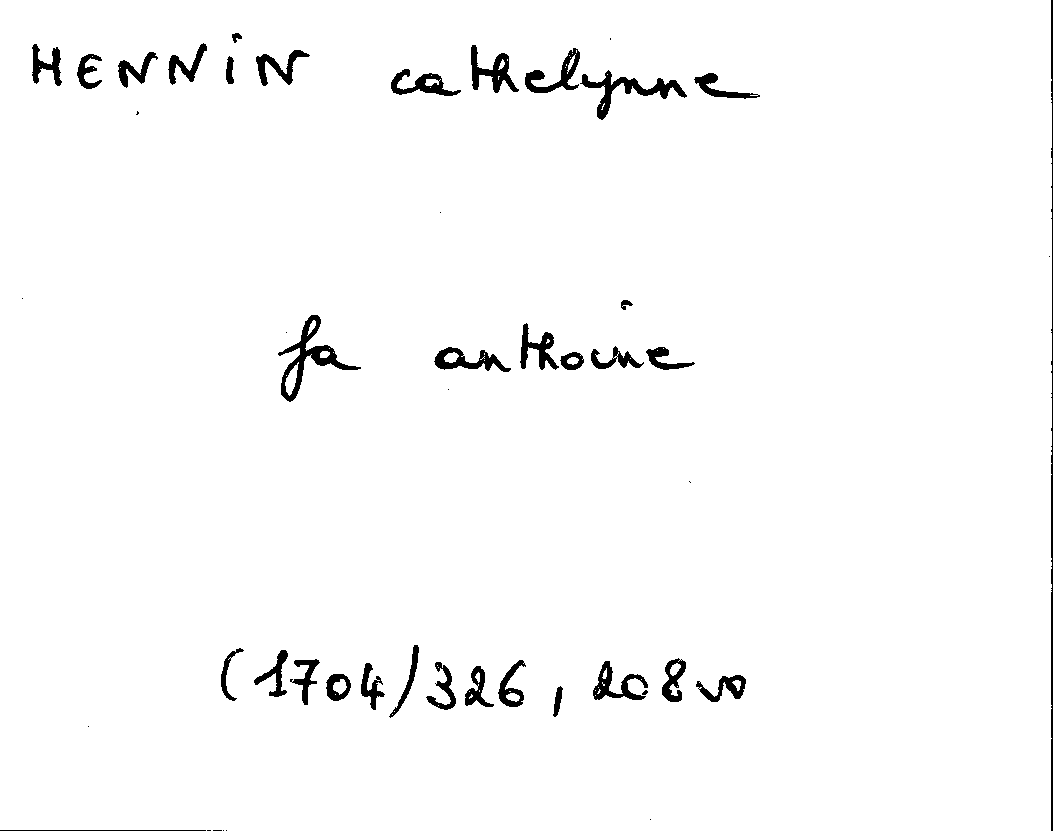 HENNiN cathelynne
fa anthoine
(1704)326, 208vo